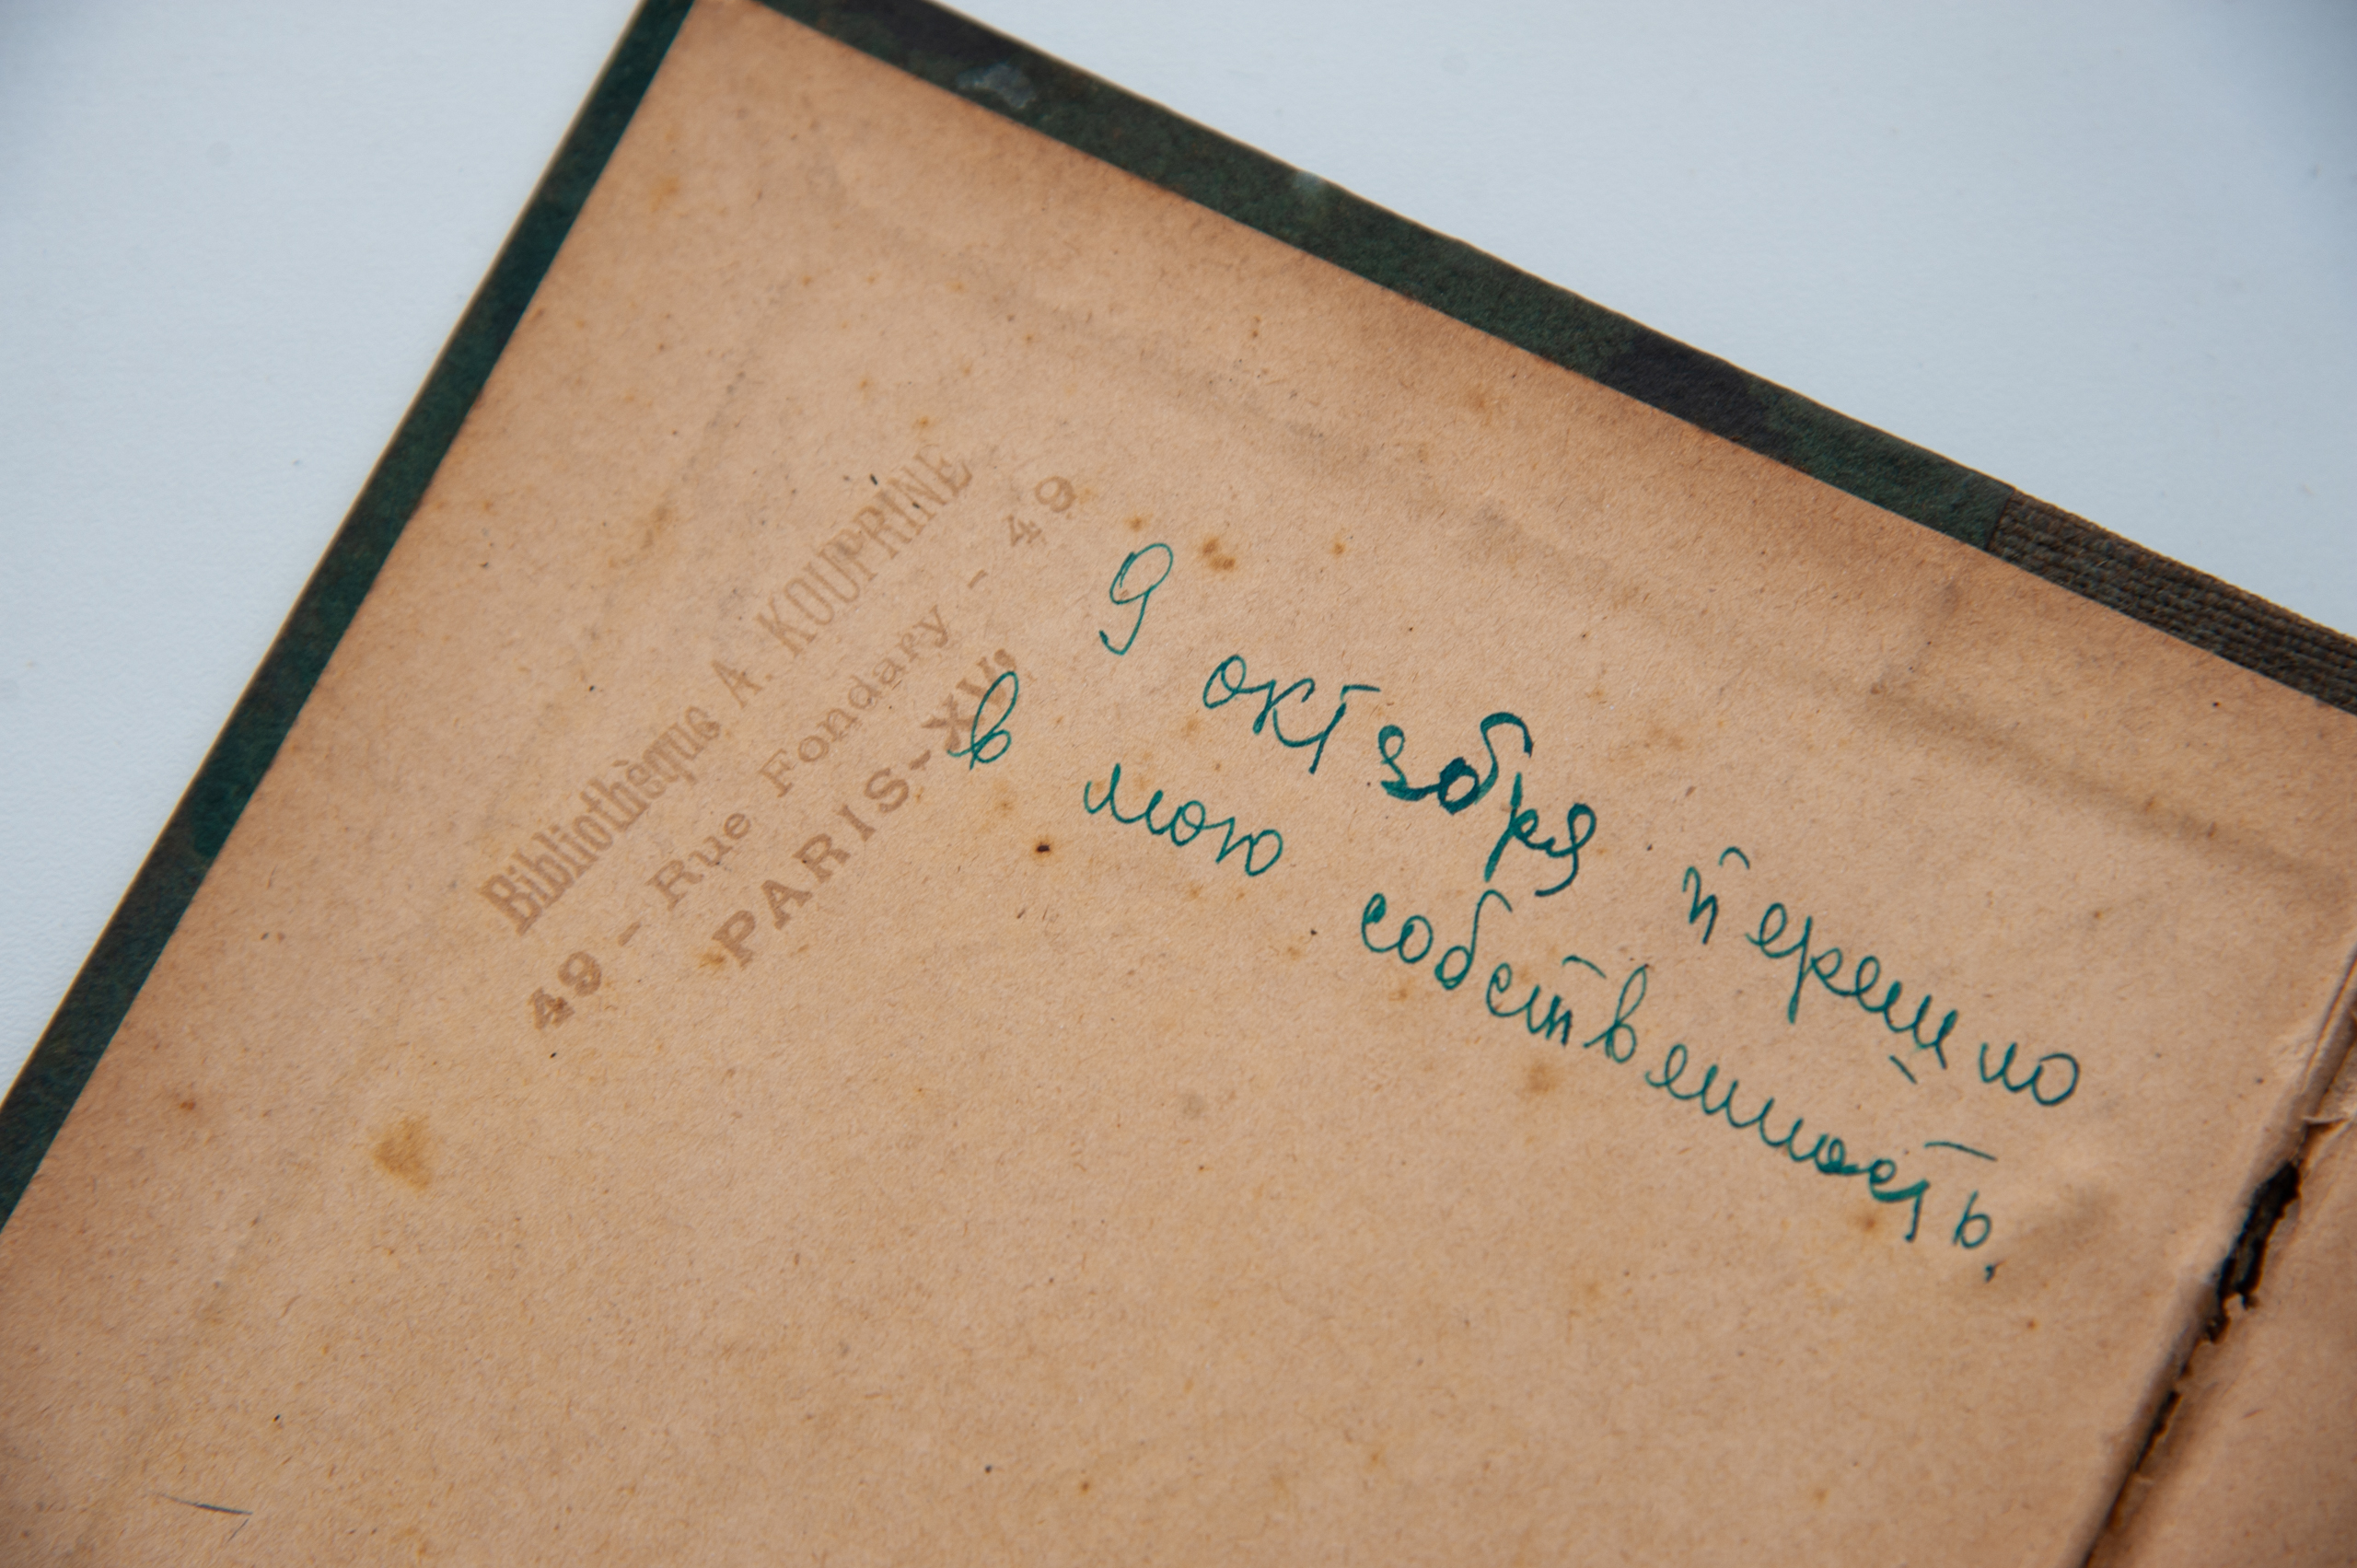 Bibliothèque A. KOUPRINE
49 - Rue Fondary - 49
PARIS-XVe
9 октября перешло
в мою собственность.